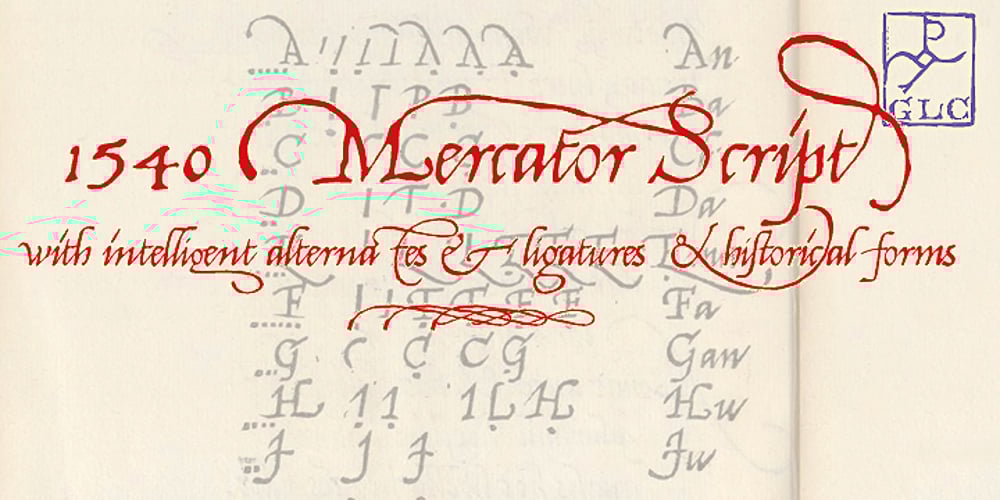 A A An
P
GLC
B P B Ba
1540 Mercator Script
C
D D Da
with intelligent alternates & ligatures & historical forms
F F Fa
G G Gaw
H H Hw
J J J Jw